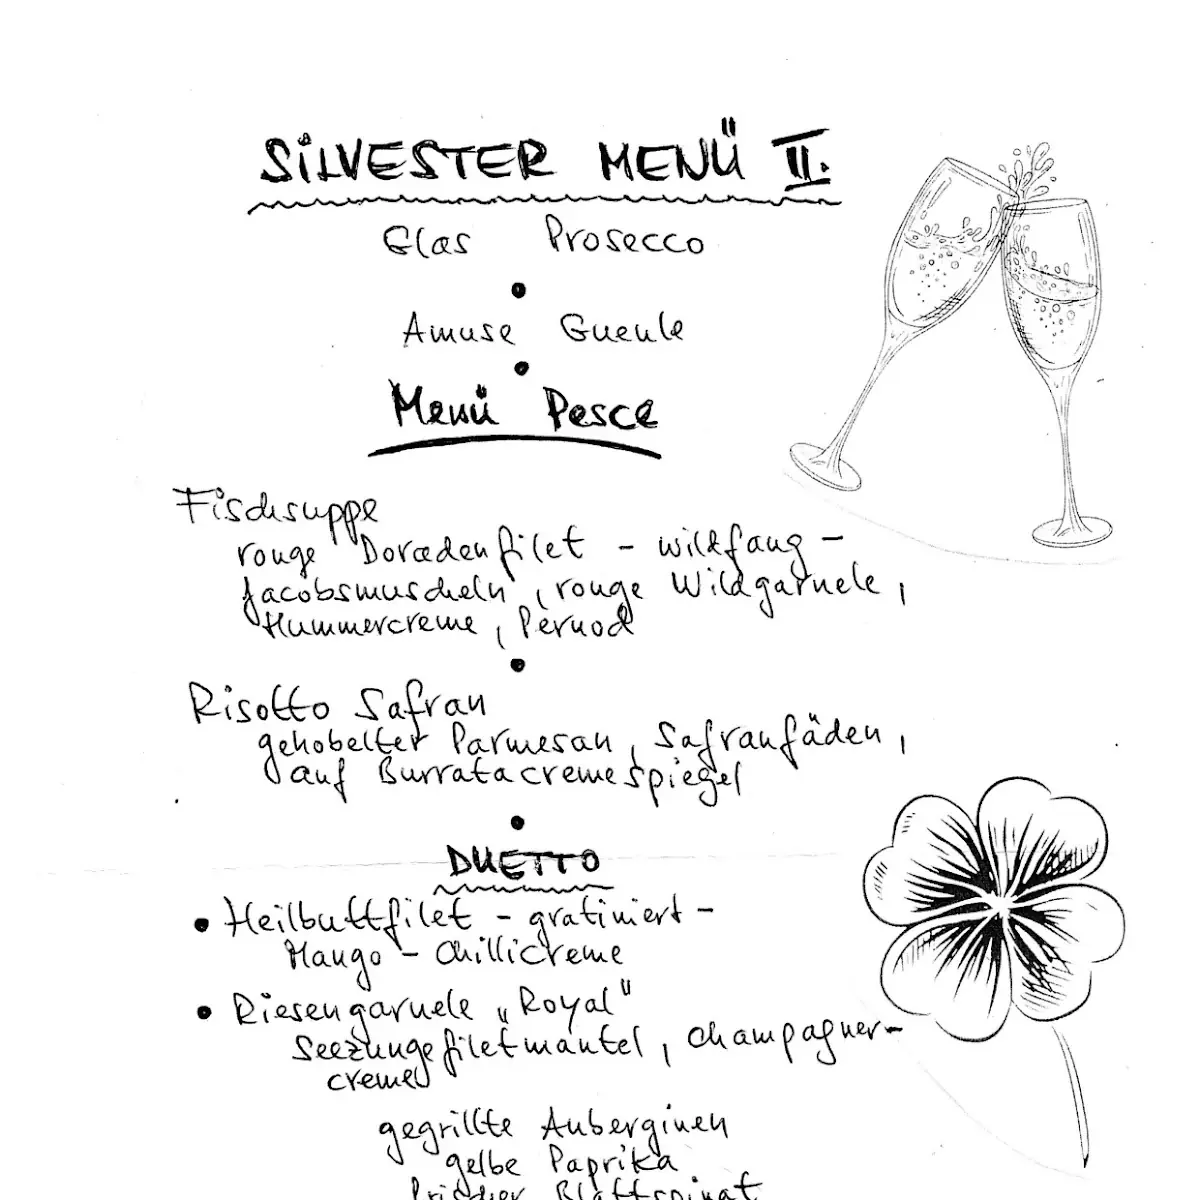 SiLVESTER MENÜ II.
Glas Prosecco
•
Amuse Gueule
•
Menü Pesce
Fischsuppe
rouge Doradenfilet - wildfang -
Jacobsmuscheln, rouge Wildgarnele,
Hummercreme, Pernod
•
Risotto Safran
gehobelter Parmesan, Safranfäden,
auf Burratacremespiegel
•
DUETTO
• Heilbuttfilet - gratiniert -
Mango - Chillicreme
• Riesengarnele „Royal"
Seezungefiletmantel, Champagner-
creme
gegrillte Auberginen
gelbe Paprika
frischer Blattspinat